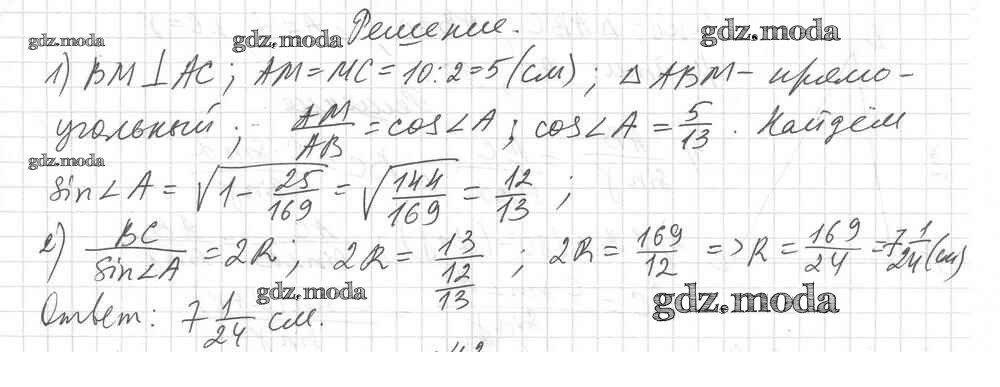 Решение.
gdz.moda gdz.moda gdz.moda
1) BM⊥AC; AM=MC=10:2=5(см); △ABM- прямо-
угольный; AM/AB = cos∠A; cos∠A = 5/13. Найдём
gdz.moda
sin∠A = √(1 - 25/169) = √(144/169) = 12/13;
2) BC/sin∠A = 2R; 2R = 13/(12/13); 2R = 169/12 => R = 169/24 = 7 1/24 (см)
gdz.moda gdz.moda
Ответ: 7 1/24 см.